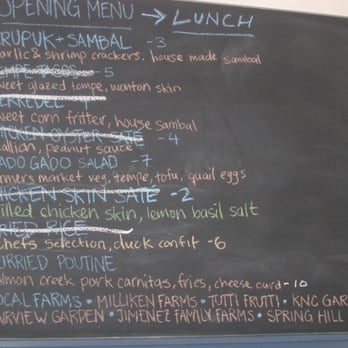 OPENING MENU → LUNCH
RUPUK + SAMBAL -3
arlic & shrimp crackers, house made sambal
TEMPE TACOS -5
weet glazed tempe, wonton skin
ERKEDEL
weet corn fritter, house sambal
ICKEN OYSTER SATE -4
allion, peanut sauce
ADO GADO SALAD -7
rmers market veg, tempe, tofu, quail eggs
HICKEN SKIN SATE -2
illed chicken skin, lemon basil salt
RIED RICE
chefs selection, duck confit -6
URRIED POUTINE
almon creek pork carnitas, fries, cheese curd -10
OCAL FARMS • MILLIKEN FARMS • TUTTI FRUTTI • KNC GAR
AIRVIEW GARDEN • JIMENEZ FAMILY FARMS • SPRING HILL